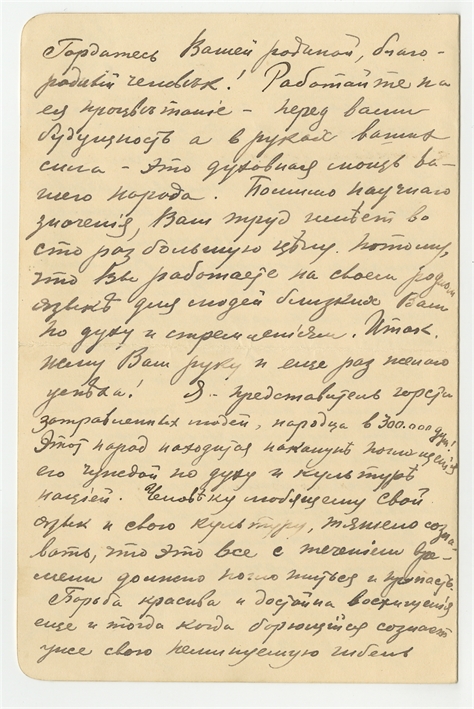 Гордитесь Вашей родиной, благо-
родный человѣк! Работайте на
ея процвѣтаніе – перед вами
будущность а в руках ваших
сила – это духовная мощь ва-
шего народа. Помимо научнаго
значенія, Ваш труд имѣет во
сто раз большую цѣну, потому,
что Вы работаете на своем родном
языкѣ для людей близких Вам
по духу и стремленіям. Итак
жму Вам руку и еще раз желаю
успѣха! Я – представитель горсти
затравленных людей, народца в 300.000 душ!
Этот народ находится наканунѣ поглощенія
его чуждой по духу и культурѣ
націей. Человѣку любящему свой
язык и свою культуру, тяжело созна-
вать, что это все с теченіем вре-
мени должно поглотиться и пропасть.
Борьба красива и достойна восхищенія
еще и тогда когда борющійся сознает
уже свою неминуемую гибель